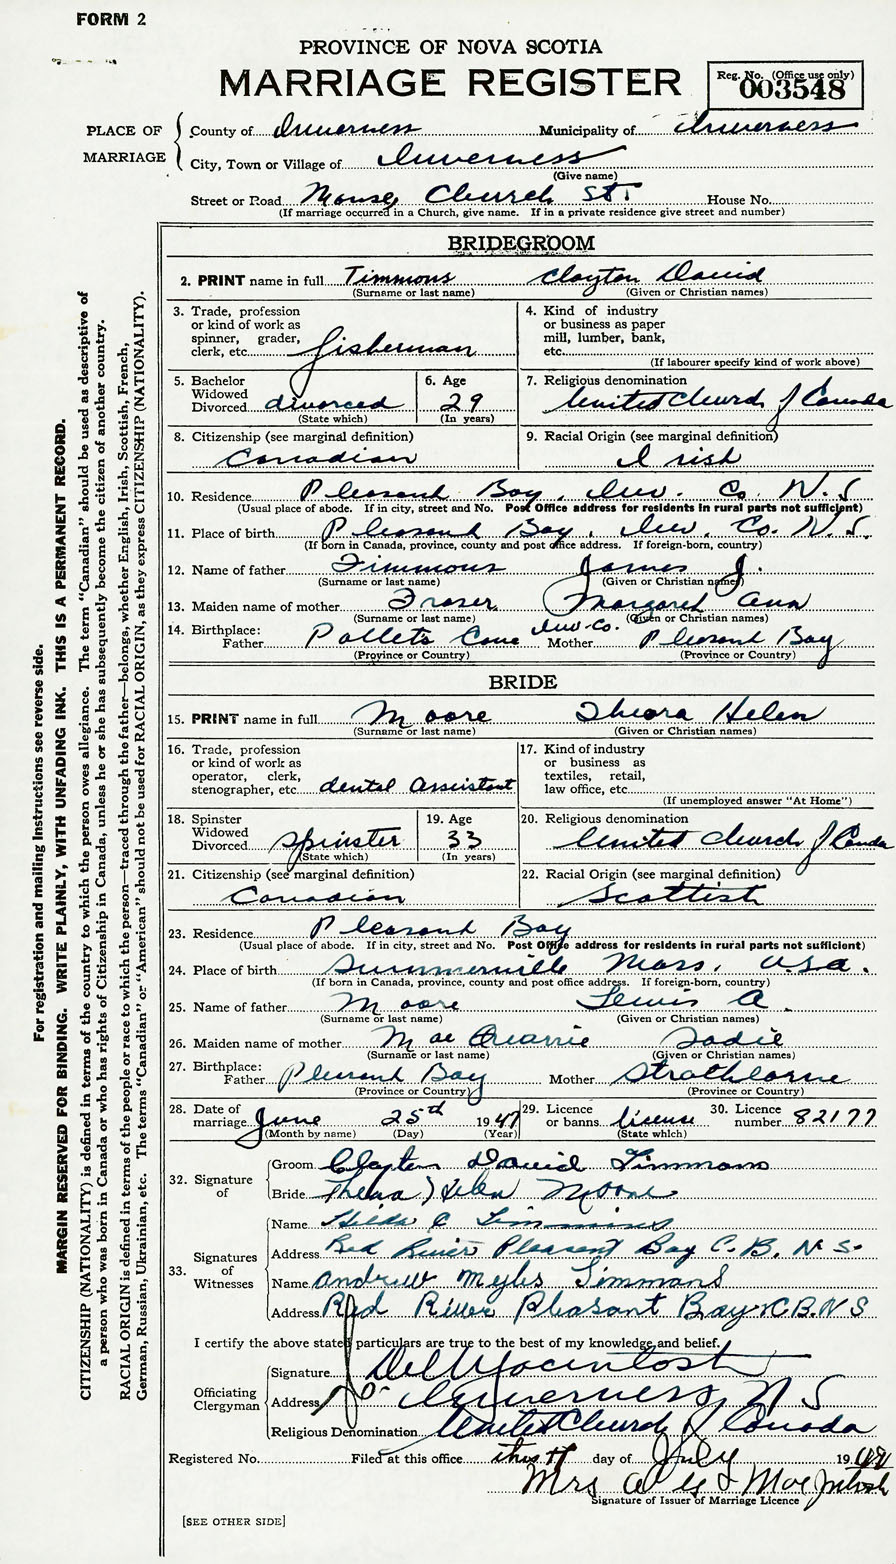 FORM 2
PROVINCE OF NOVA SCOTIA
MARRIAGE REGISTER
Reg. No. (Office use only)
003548
PLACE OF MARRIAGE
County of Inverness Municipality of Inverness
City, Town or Village of Inverness
(Give name)
Street or Road Manse, Church St. House No.
(If marriage occurred in a Church, give name. If in a private residence give street and number)
BRIDEGROOM
2. PRINT name in full Timmons Clayton David
(Surname or last name) (Given or Christian names)
3. Trade, profession
or kind of work as
spinner, grader,
clerk, etc. fisherman
4. Kind of industry
or business as paper
mill, lumber, bank,
etc.
(If labourer specify kind of work above)
5. Bachelor
Widowed
Divorced divorced
(State which)
6. Age
29
(In years)
7. Religious denomination
United Church of Canada
8. Citizenship (see marginal definition)
Canadian
9. Racial Origin (see marginal definition)
Irish
10. Residence Pleasant Bay, Inv. Co. N.S
(Usual place of abode. If in city, street and No. Post Office address for residents in rural parts not sufficient)
11. Place of birth Pleasant Bay, Inv. Co. N.S.
(If born in Canada, province, county and post office address. If foreign-born, country)
12. Name of father Timmons James J.
(Surname or last name) (Given or Christian names)
13. Maiden name of mother Fraser Margaret Ann
(Surname or last name) (Given or Christian names)
14. Birthplace:
Father Pollets Cove Inv. Co. Mother Pleasant Bay
(Province or Country) (Province or Country)
BRIDE
15. PRINT name in full Moore Theora Helen
(Surname or last name) (Given or Christian names)
16. Trade, profession
or kind of work as
operator, clerk,
stenographer, etc. dental assistant
17. Kind of industry
or business as
textiles, retail,
law office, etc.
(If unemployed answer "At Home")
18. Spinster
Widowed
Divorced spinster
(State which)
19. Age
33
(In years)
20. Religious denomination
United Church of Canada
21. Citizenship (see marginal definition)
Canadian
22. Racial Origin (see marginal definition)
Scottish
23. Residence Pleasant Bay
(Usual place of abode. If in city, street and No. Post Office address for residents in rural parts not sufficient)
24. Place of birth Summerville Mass. U.S.A.
(If born in Canada, province, county and post office address. If foreign-born, country)
25. Name of father Moore Lewis A.
(Surname or last name) (Given or Christian names)
26. Maiden name of mother Mac Quarrie Sadie
(Surname or last name) (Given or Christian names)
27. Birthplace:
Father Pleasant Bay Mother Strathlorne
(Province or Country) (Province or Country)
28. Date of
marriage June 25th 1947
(Month by name) (Day) (Year)
29. Licence
or banns. license
(State which)
30. Licence
number 82177
32. Signature
of
Groom Clayton David Timmons
Bride Theora Helen Moore
33. Signatures
of
Witnesses
Name Hilda C Timmons
Address Red River Pleasant Bay C.B. N.S.
Name Andrew Myles Timmons
Address Red River Pleasant Bay C.B.N.S
I certify the above stated particulars are true to the best of my knowledge and belief.
Officiating
Clergyman
Signature Macintosh
Address Inverness, N S
Religious Denomination United Church of Canada
Registered No. Filed at this office this day of July 19
Mrs
Signature of Issuer of Marriage Licence
[SEE OTHER SIDE]
For registration and mailing instructions see reverse side.
MARGIN RESERVED FOR BINDING. WRITE PLAINLY, WITH UNFADING INK. THIS IS A PERMANENT RECORD.
CITIZENSHIP (NATIONALITY) is defined in terms of the country to which the person owes allegiance. The term "Canadian" should be used as descriptive of
a person who was born in Canada or who has rights of Citizenship in Canada, unless he or she has subsequently become the citizen of another country.
RACIAL ORIGIN is defined in terms of the people or race to which the person—traced through the father—belongs, whether English, Irish, Scottish, French,
German, Russian, Ukrainian, etc. The terms "Canadian" or "American" should not be used for RACIAL ORIGIN, as they express CITIZENSHIP (NATIONALITY).